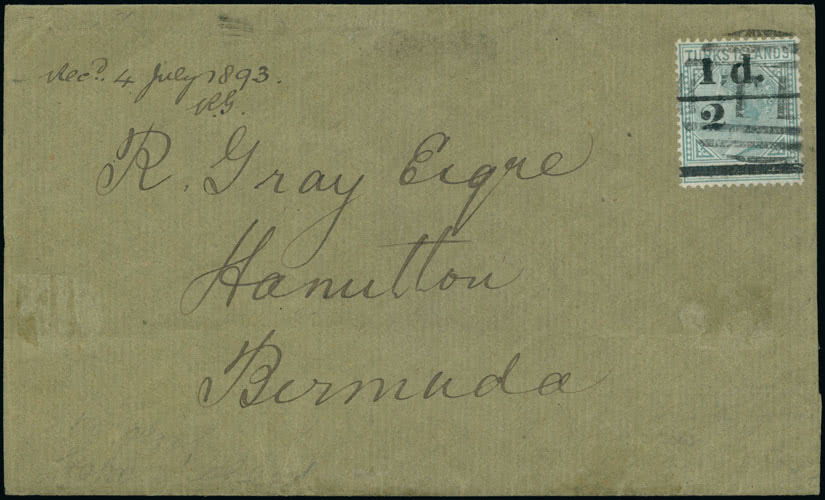 TURKS ISLANDS
1 d.
2
Recd. 4 July 1893.
R.G.
R. Gray Esqre
Hamilton
Bermuda